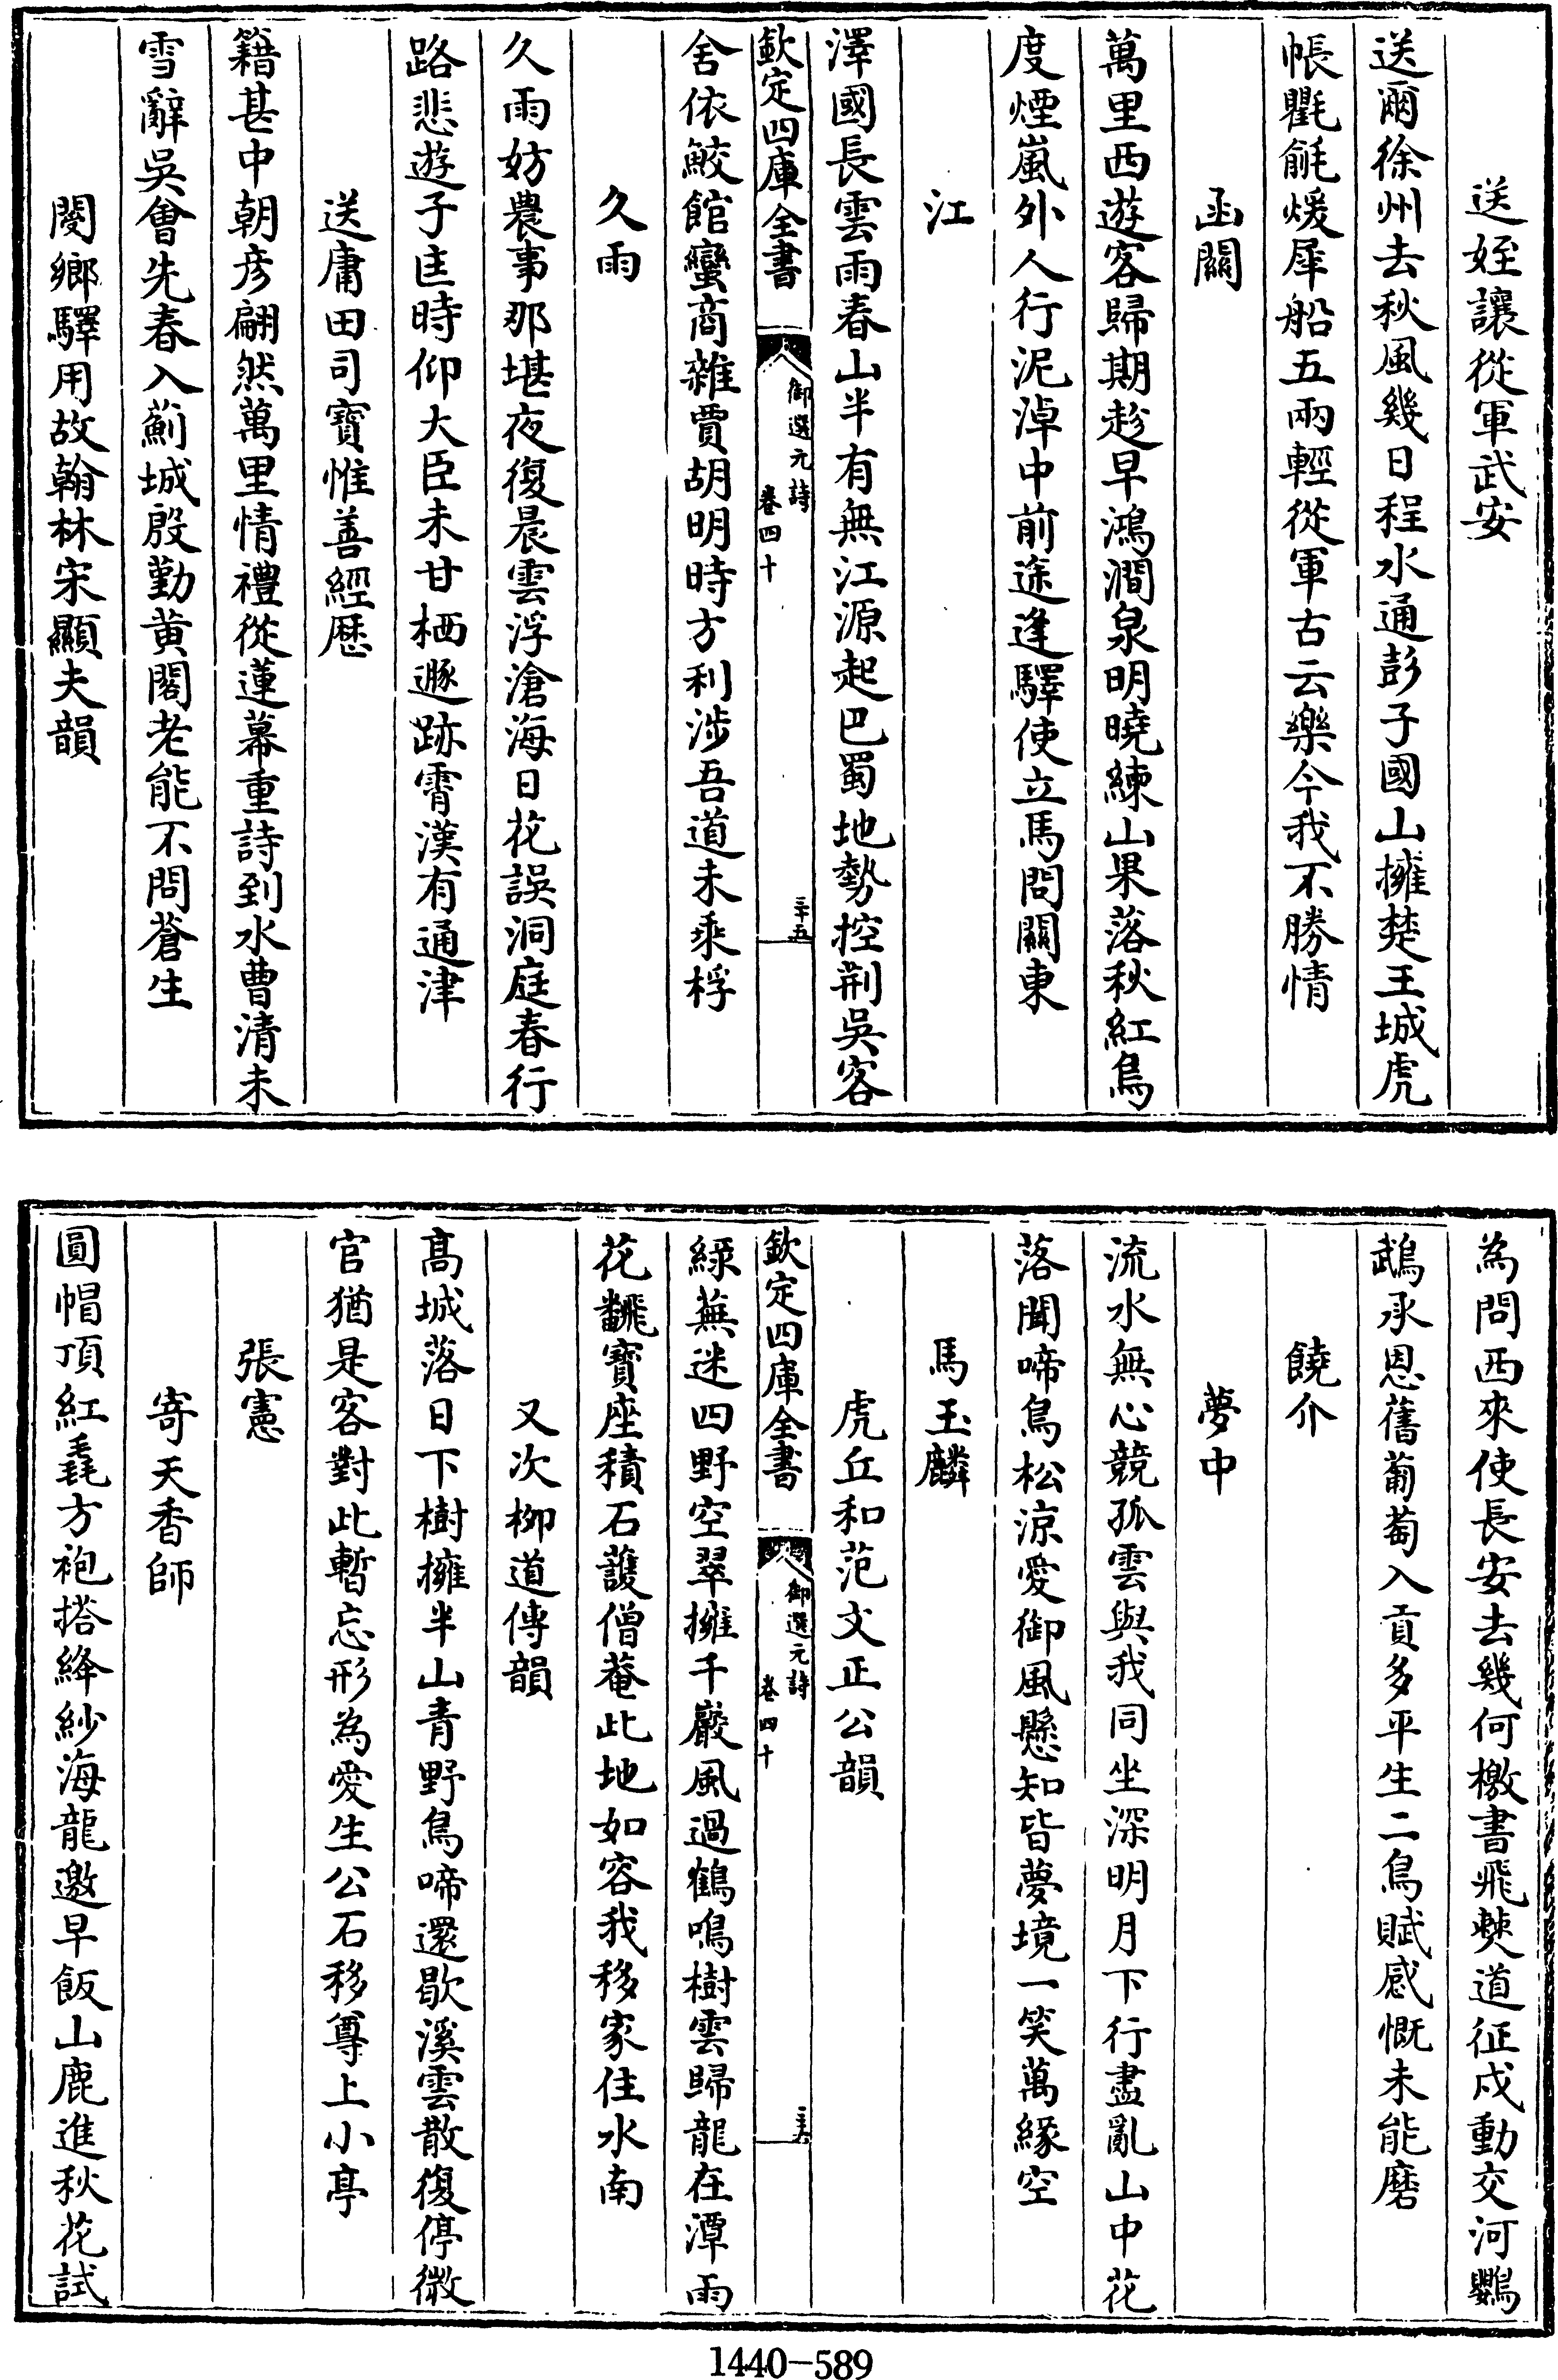 送姪讓從軍武安
送爾徐州去秋風幾日程水通彭子國山擁楚王城虎
帳氍毹煖犀船五兩輕從軍古云樂今我不勝情
函關
萬里西遊客歸期趁早鴻澗泉明曉練山果落秋紅鳥
度煙嵐外人行泥淖中前途逢驛使立馬問關東
江
澤國長雲雨春山半有無江源起巴蜀地勢控荆吳客
欽定四庫全書
御選元詩
卷四十
三十五
舍依鮫館蠻商雜賈胡明時方利涉吾道未乘桴
久雨
久雨妨農事那堪夜復晨雲浮滄海日花誤洞庭春行
路悲遊子匡時仰大臣未甘栖遯跡霄漢有通津
送庸田司寶惟善經歷
籍甚中朝彦翩然萬里情禮從蓮幕重詩到水曹清未
雪辭吳會先春入薊城殷勤黄閣老能不問蒼生
閿鄉驛用故翰林宋顯夫韻
為問西來使長安去幾何檄書飛僰道征戍動交河鸚
鵡承恩舊葡萄入貢多平生二鳥賦感慨未能磨
饒介
夢中
流水無心競孤雲與我同坐深明月下行盡亂山中花
落聞啼鳥松涼愛御風懸知皆夢境一笑萬緣空
馬玉麟
虎丘和范文正公韻
欽定四庫全書
御選元詩
卷四十
三十六
綠蕪迷四野空翠擁千巖風過鶴鳴樹雲歸龍在潭雨
花飜寶座積石護僧菴此地如容我移家住水南
又次栁道傳韻
髙城落日下樹擁半山青野鳥啼還歇溪雲散復停微
官猶是客對此暫忘形為愛生公石移尊上小亭
張憲
寄天香師
圓帽頂紅毳方袍搭絳紗海龍邀早飯山鹿進秋花試
1440-589